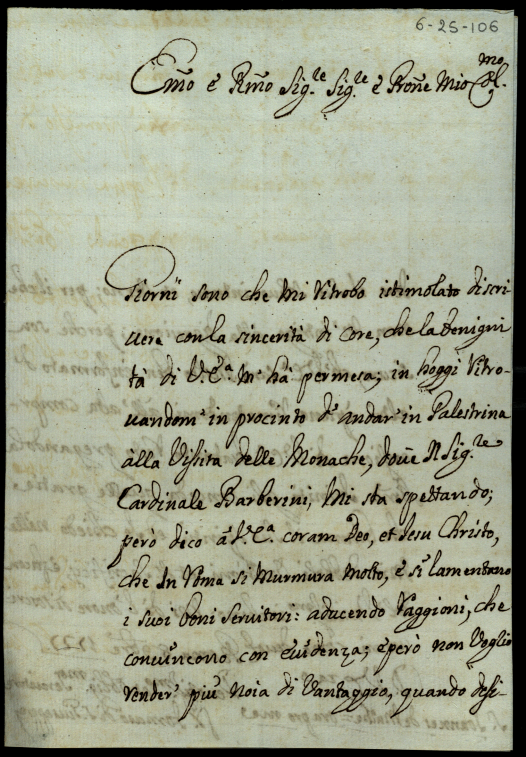 6-25-106
Em̃o e Rm̃o Sig.re Sig.re e Prone Mio Col.mo
Giorni sono che mi ritrobo istimolato discri-
uere con la sincerità di core, che la benigni
tà di V.E.a m' hà permesa; in hoggi ritro-
uandom' in procinto d' andar' in Palestrina
alla Visita delle Monache, doue Il Sig.re
Cardinale Barberini, mi sta spettando;
però dico a V.E.a coram Deo, et Jesu Christo,
che in Roma si murmura molto, e si lamentano
i suoi boni seruitori: aducendo raggioni, che
conuincono con euidenza; e però non voglio
render' più noia di vantaggio, quando desi-